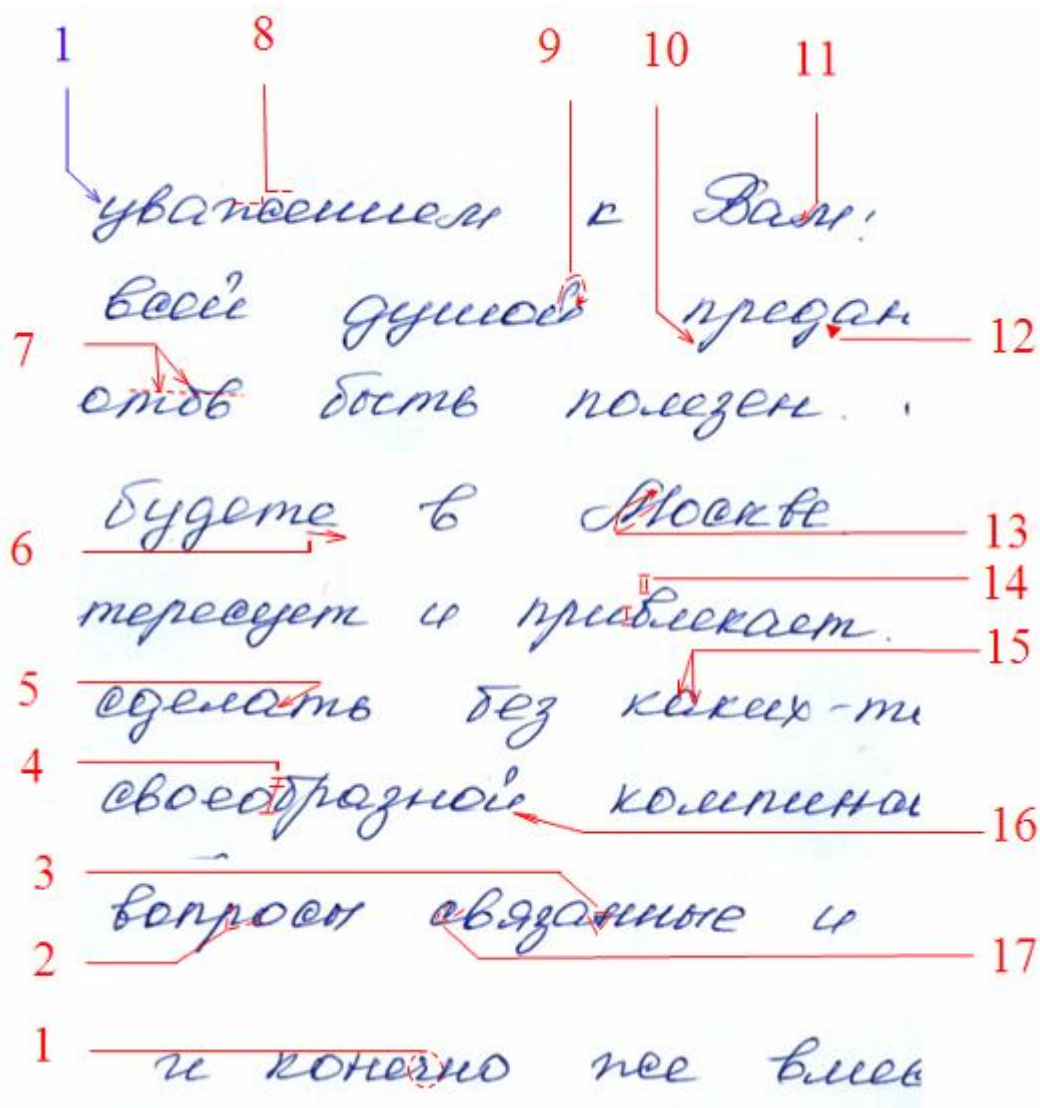 1 8 9 10 11
уважением к Вам!
всей душой предан
7 12
отов быть полезен.
будете в Москве
6 13
14
тересует и привлекает.
15
5 сделать без каких-то
4
своеобразной компина
16
3
вопросы связанные и
2 17
1 и конечно же вмес